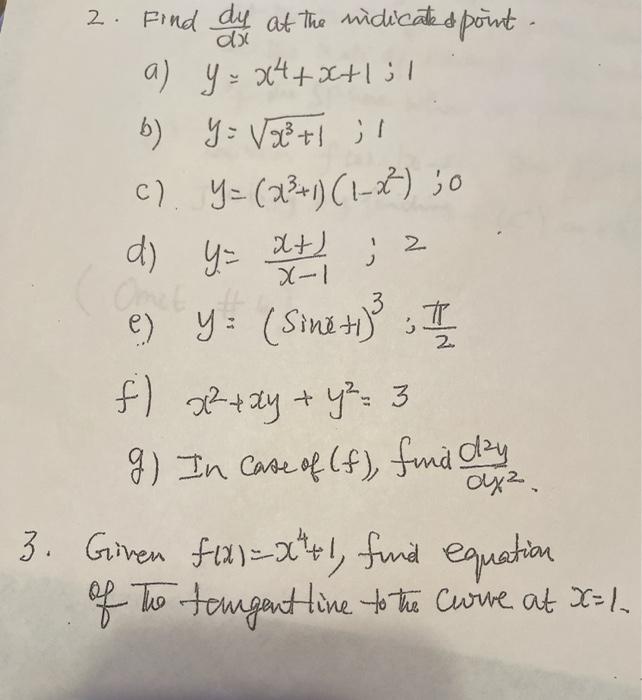 2. Find dy/dx at the indicated point.
a) y = x⁴+x+1 ; 1
b) y = √(x³+1) ; 1
c). y = (x³+1)(1-x²) ; 0
d) y = (x+1)/(x-1) ; 2
e) y = (Sinx+1)³ ; π/2
f) x²+xy + y² = 3
g) In Case of (f), find d²y/dx².
3. Given f(x)=x⁴+1, find equation
of The tangent line to the curve at x=1.